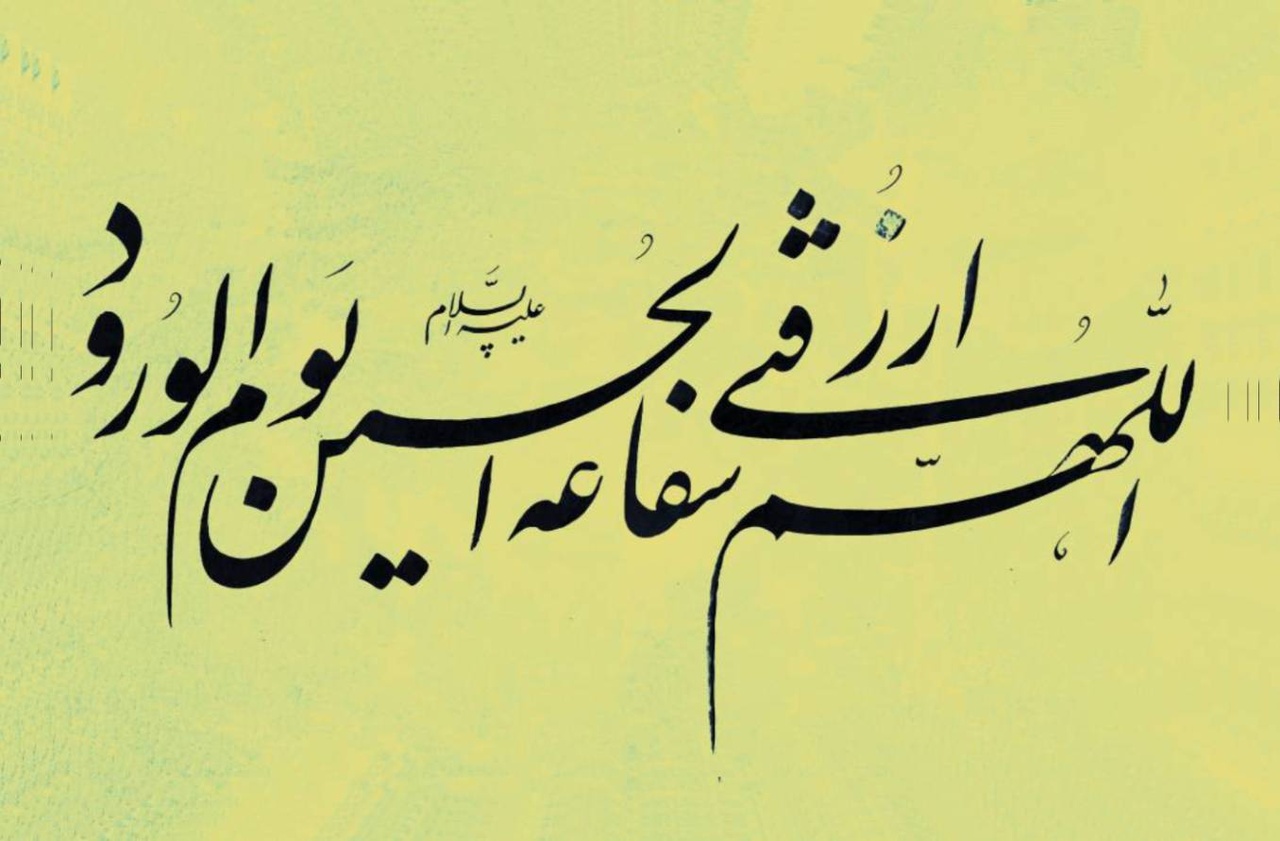 اللّهُمَّ ارزُقنی شفاعه الحُسین علیه السَّلام یَوم الوُرود